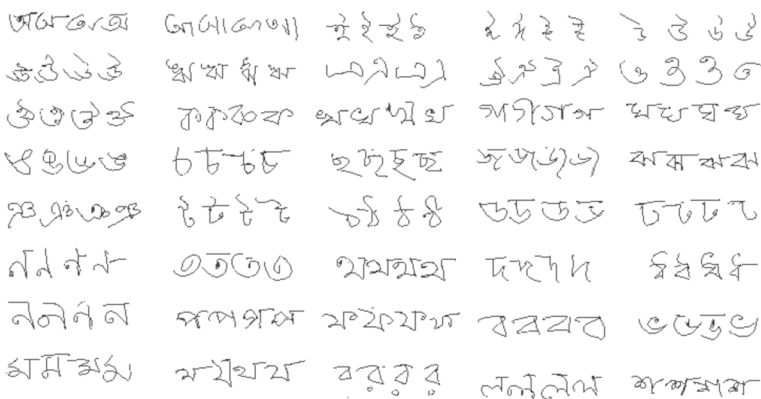 অঅঅঅ আআআআ ইইইই ঈঈঈঈ উউউউ
ঊঊঊঊ ঋঋঋঋ এএএএ ঐঐঐঐ ওওওও
ঔঔঔঔ কককক খখখখ গগগগ ঘঘঘঘ
ঙঙঙঙ চচচচ ছছছছ জজজজ ঝঝঝঝ
ঞঞঞঞ টটটট ঠঠঠঠ ডডডড ঢঢঢঢ
ণণণণ তততত থথথথ দদদদ ধধধধ
নননন পপপপ ফফফফ বববব ভভভভ
মমমম যযযয রররর লললল শশশশ